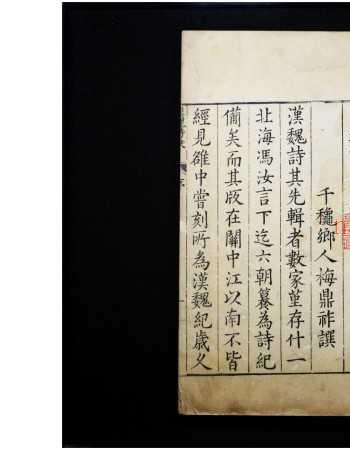 千穐鄉人梅鼎祚譔
漢魏詩其先輯者數家堇存什一
北海馮汝言下迄六朝纂為詩紀
備矣而其版在關中江以南不皆
經見雒中嘗刻所為漢魏紀歲乆